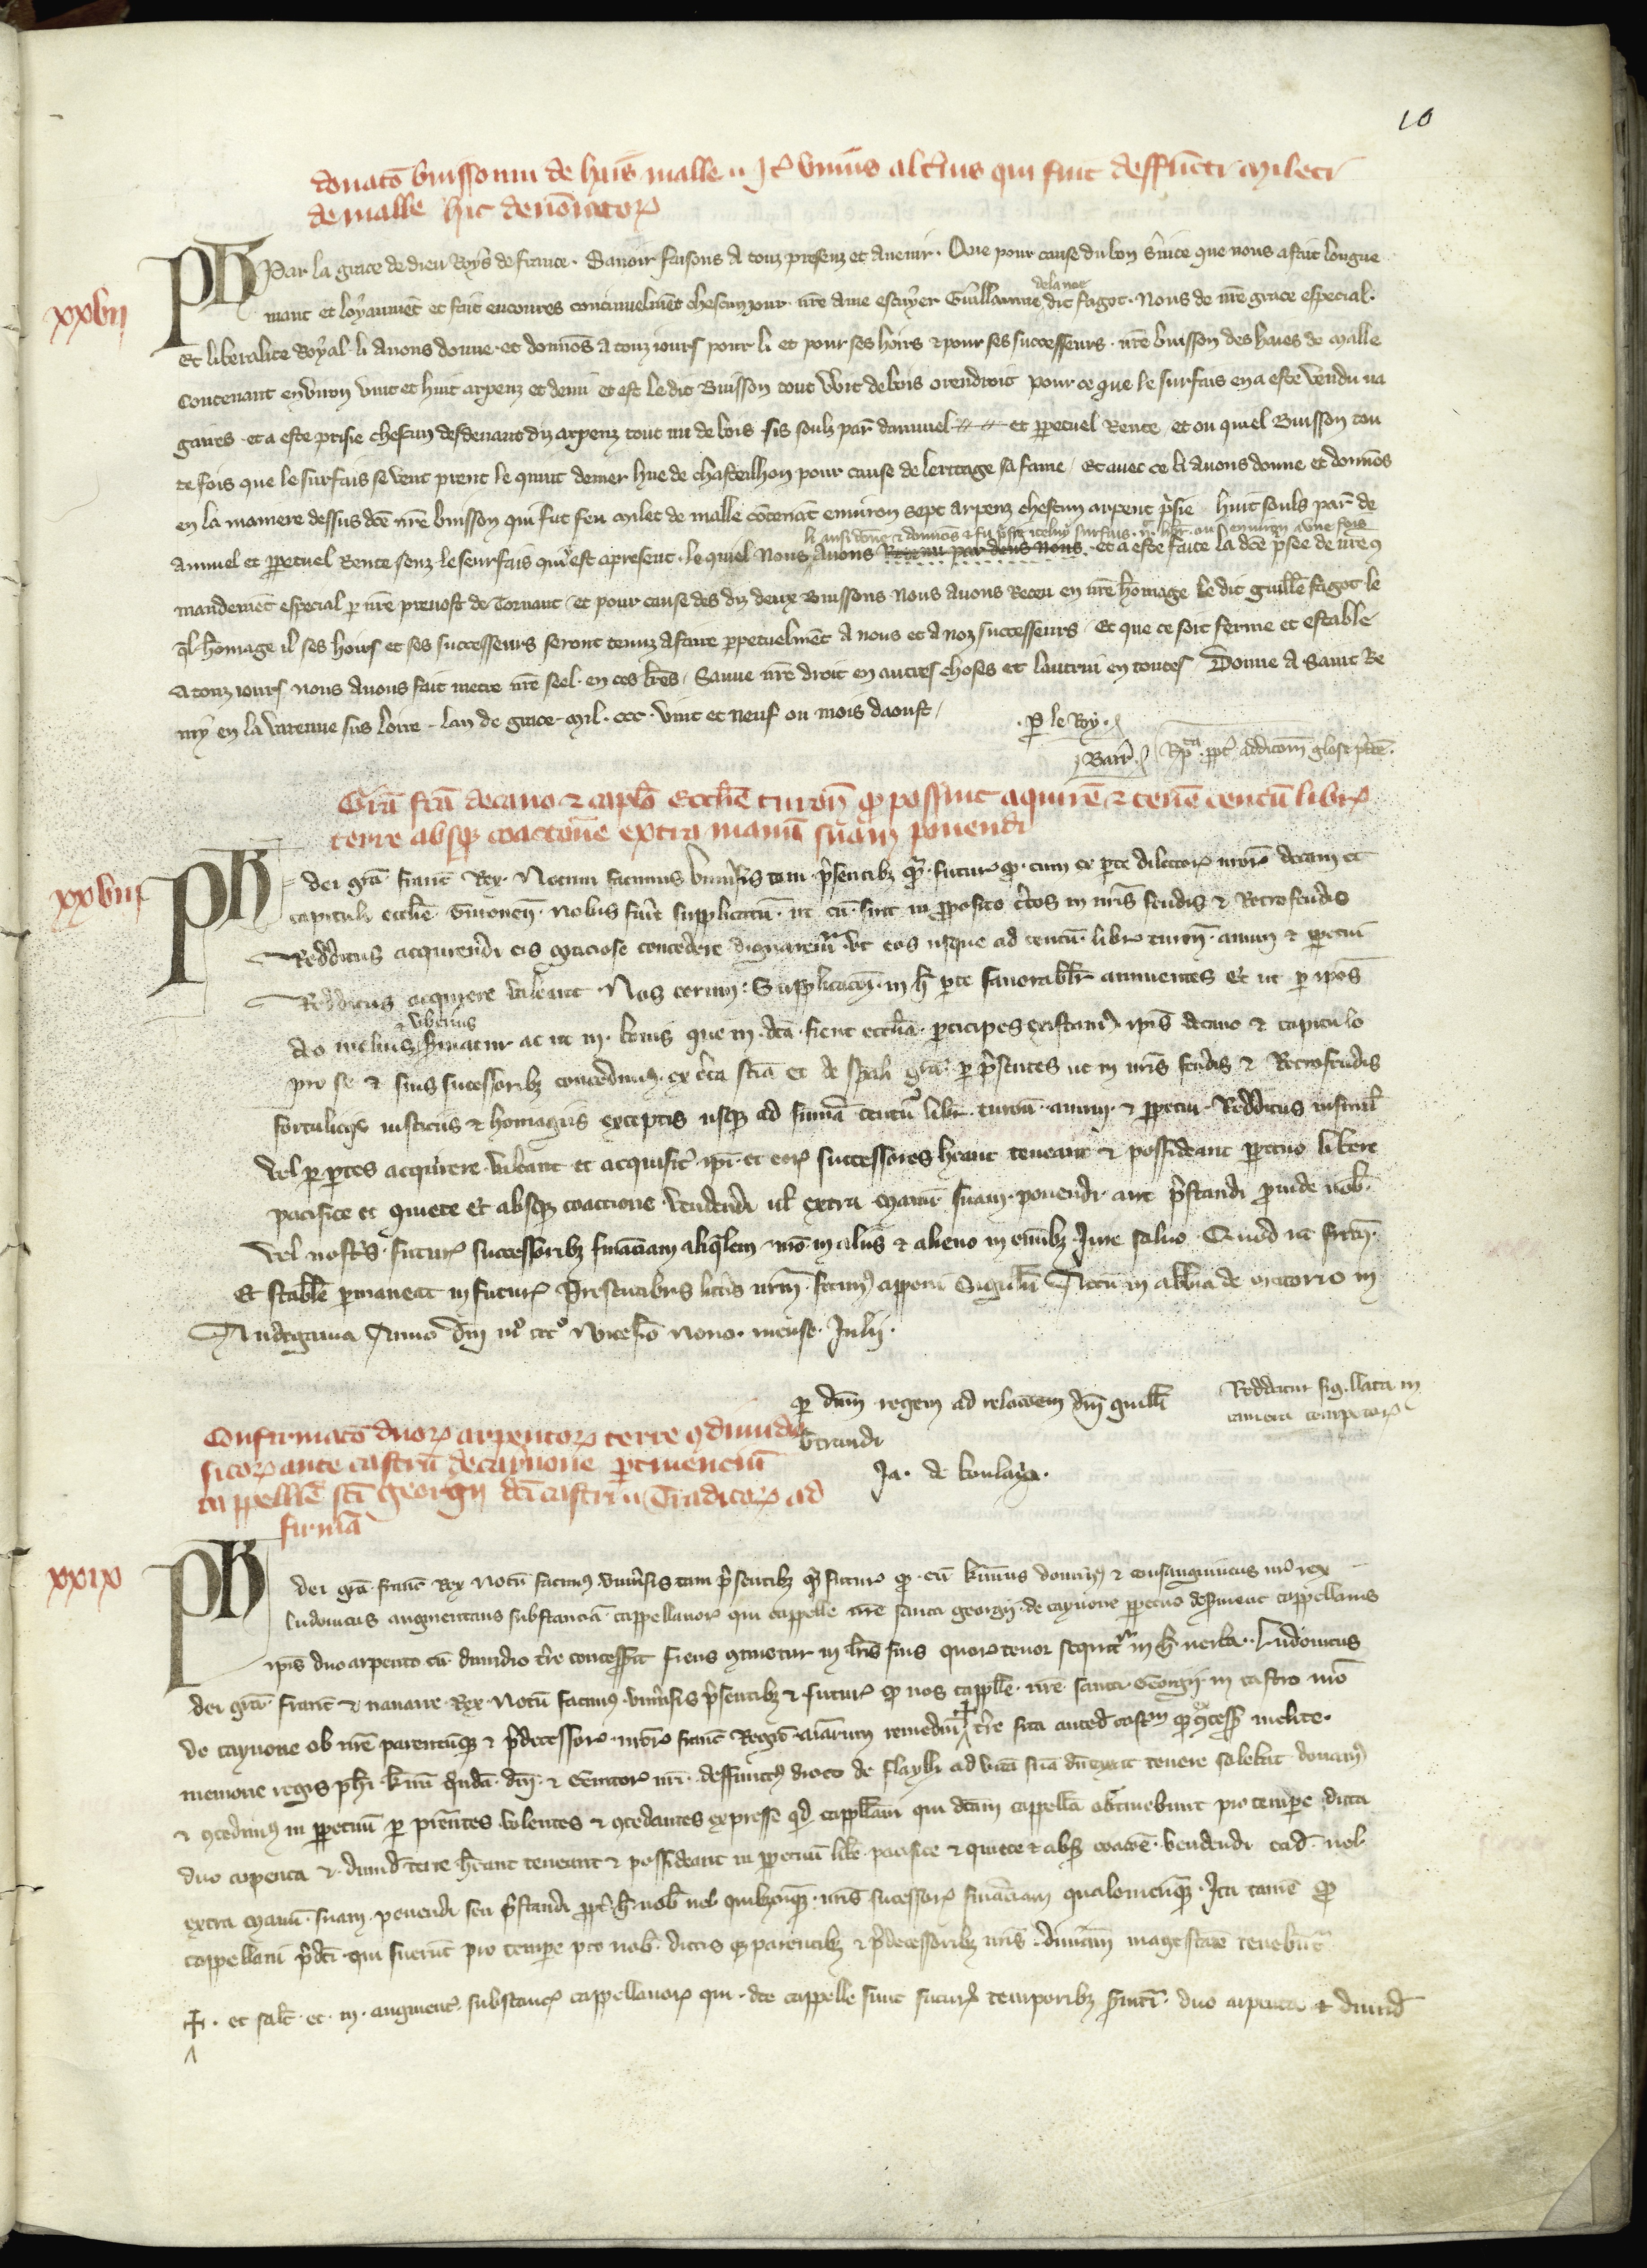 10
donatō buissonni de haiis malle .. Itē unius alterius qui fuit deffuncti mileti
de malle hic denōiator
xxvii
Ph Par la grace de dieu Roys de france. Savoir faisons A touz presenz et avenir. Que pour cause du bon service que nous a fait longue
mant et loyaumēt et fait encoures continuelmēt chescun jour. nrē ame escuyer Guillaume delanoe dit fagot. Nous de nrē grace especial.
Et liberalite Royal. li Avons donne. et donnōs a touz jours pour li et pour ses hoirs et pour ses successeurs. nrē buisson des haies de malle
Contenant environ vint et huit arpenz et demi et est le dit Buisson tout voit de bois orendroit pour ce que le surfais en a este vendu na
gaires. et a este prisie chescun desdevant diz arpenz tout nu de bois. sis soulz par dannuel et ppetuel Rente. et ou quel Buisson tou
te fois que le surfais se vent prent le quint denier hue de chasteilhon pour cause de leritage sa fame. Et avec ce li Avons donne et donnōs
en la maniere dessus dcē nrē buisson qui fut feu milet de malle cōtenāt environ sept arpenz chescun arpent prisie huit soulz par de
li ansi dōne et donnōs et fu prisie icelui surfais environ a une fois
annuel et ppetuel Rente senz le seurfais qui est apresent. le quel Nous Avons Retenu par devs nous. et a este faite la dcē prisee de nrē
mandemēt especial p nrē prevost de Tornant. et pour cause des diz deux Buissons Nous Avons Receu en nrē hōmage le dit guillē fagot le
ql hōmage il ses hoirs et ses successeurs seront tenuz a faire ppetuelmēt A nous et a noz successeurs. Et que ce soit ferme et estable
A touz jours Nous Avons fait metre nrē seel. en ces lrēs. Sauve nrē droit en autres choses et lautrui en toutes. Donne A Saint Re
my en la varenne sus loire. lan de grace. mil. ccc. vint et neuf ou mois daoust.
. p le Roy.
Barr. Rpta ppt addicōem glose pdcē.
Grā fcā decano et caplo Ecclīē turon qp possint aquirē et tenē centū libr
terre absq coactōne extra manū suam ponendi
xxviii
Ph dei grā franc Rex. Notum facimus universis tam presentibz q futur qp cum ex pte dilector nror decani et
capituli ecclīē Turonen. nobis fuit supplicatū. ut cū sint in pposito ctos in nris feudis et Retrofeudis
Redditus acquirendi eis graciose concedere dignaremur. Ut eos usque ad centū libr turon. annui et ppetui
Redditus acquirere valeant. Nos eorum supplicacōi in h pte favorabilr annuentes Et ut p ipos
deo melius et uberius serviatur ac ut in bonis que in dcā fient ecclīā pticipes existamus ipis decano et capitulo
pro se et suis successoribz concedimus ex certa sciā et de spali grā p psentes ut in nris feudis et Retrofeudis
fortaliciis iusticiis et homagiis exceptis usq ad sumā centū libr turon annui et ppetui Redditus insimul
vel p ptes acquirere valeant et acquisita ipi et eor successores heant teneant et possideant ppetuo libere
pacifice et quiete Et absq coactione vendendi vl extra manū suam ponendi aut prestandi proinde nob.
Vel nostris futur successoribz financiam aliqualem nro in aliis et alieno in omibz Jure salvo. Quod ut firm
Et stabile pmaneat in futur Presentibus litis nrm fecimus apponi Sigillū Actū in abbatia de oratorio in
Andegavia Anno dni mo ccco vicesio nono. mense. Julii.
p dnm regem ad relacōem dni guilli
btrandi
Ja. de boulaya.
Redditur sigillata in
camera compotor
Confirmatō duor arpentor terre et dimidii
sitor ante castrū de caynone ptinenciū
cappellīe scī georgii dci castri .. Traditor ad
firmā
xxix
Ph dei grā franc Rex Notū facimus universis tam presentibz q futur qp cū kmus dominus et consanguineus nr rex
ludovicus augmentans substanciā cappellanor qui cappelle nrē sancti georgii de caynone ppetuo deserviunt cappellanis
ipis duo arpento cū dimidio tre concesserit sicus continetur in lris suis quor tenor sequitr in h verba. Ludovicus
dei grā franc et navarre Rex. Notū facimus universis presentibz et futur qp nos cappelle nre sancti Georgii in castro nro
de caynone ob nrē parentūq et predecessor nror franc Regū aiarum remediū ☩ tre sita ante dcm castrum que ex concessione inclite.
memorie regis phi kmi quondā dni et Genitor nri deffunctus droco de flaylli ad vitā suā dū vixit tenere solebat donamus
et concedimus in ppetuū p presentes volentes et concedentes expresse qd cappellani qui dcam cappellā obtinebunt pro tempe dicta
duo arpenta et dimid terre heant teneant et possideant in ppetuū libe pacifice et quiete et absq coactōe vendendi eadē vel
extra manū suam ponendi seu prestandi ppt h nob vel quibzcūq nris sucessor financiam qualemcūq. Ita tamē qp
cappellani pdcī qui fuerūt pro tempe pro nob dictis q parentibz et predecessoribz nris divinam magestate tenebūtr
☩. et salt et in augment substanc cappellanor qui dce cappelle sunt futuris temporibz servituri duo arpenta et dimid